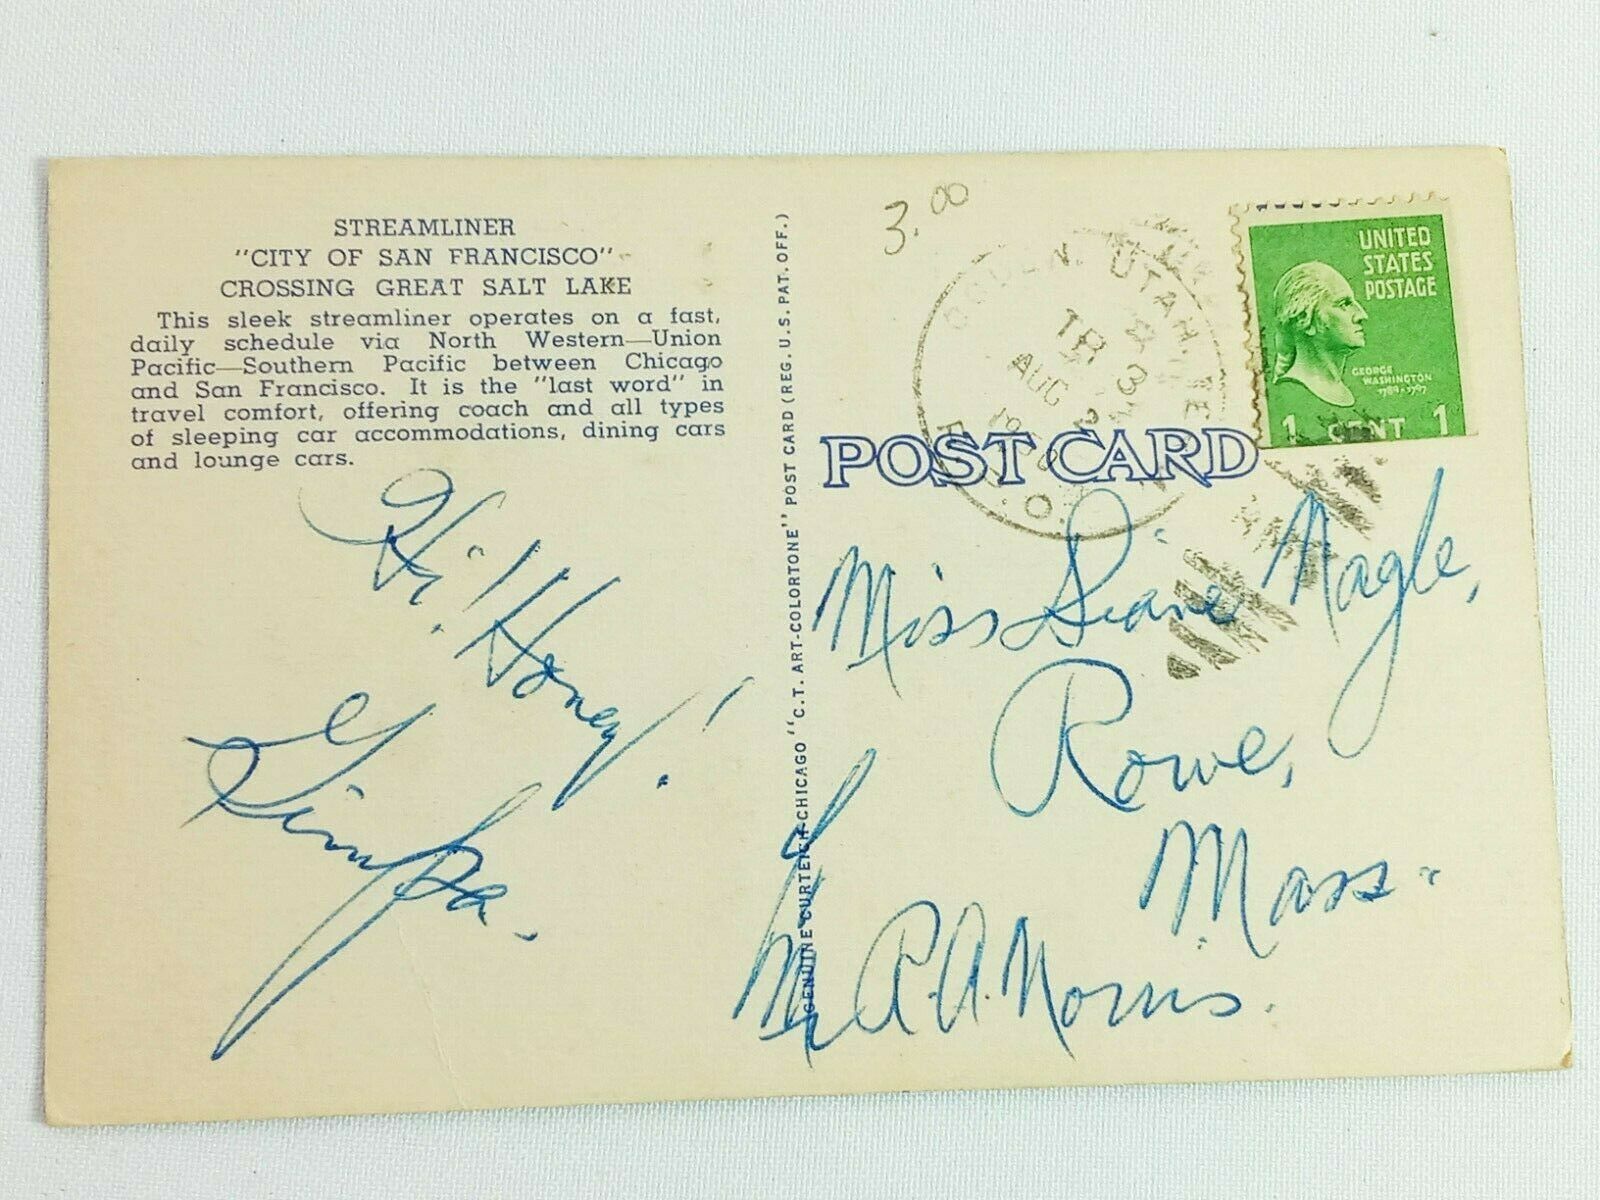 STREAMLINER
"CITY OF SAN FRANCISCO"
CROSSING GREAT SALT LAKE
This sleek streamliner operates on a fast,
daily schedule via North Western—Union
Pacific—Southern Pacific between Chicago
and San Francisco. It is the "last word" in
travel comfort, offering coach and all types
of sleeping car accommodations, dining cars
and lounge cars.
Hi! Honey!
Gimpa.
GENUINE CURTEICH-CHICAGO "C.T. ART-COLORTONE" POST CARD (REG. U.S. PAT. OFF.)
3.00
UTAH
TR 3
AUG
R.P.O.
UNITED
STATES
POSTAGE
GEORGE
WASHINGTON
1789-1797
1 CENT 1
POST CARD
Miss Diane Nagle,
Rowe,
Mass.
R.A. Norris.